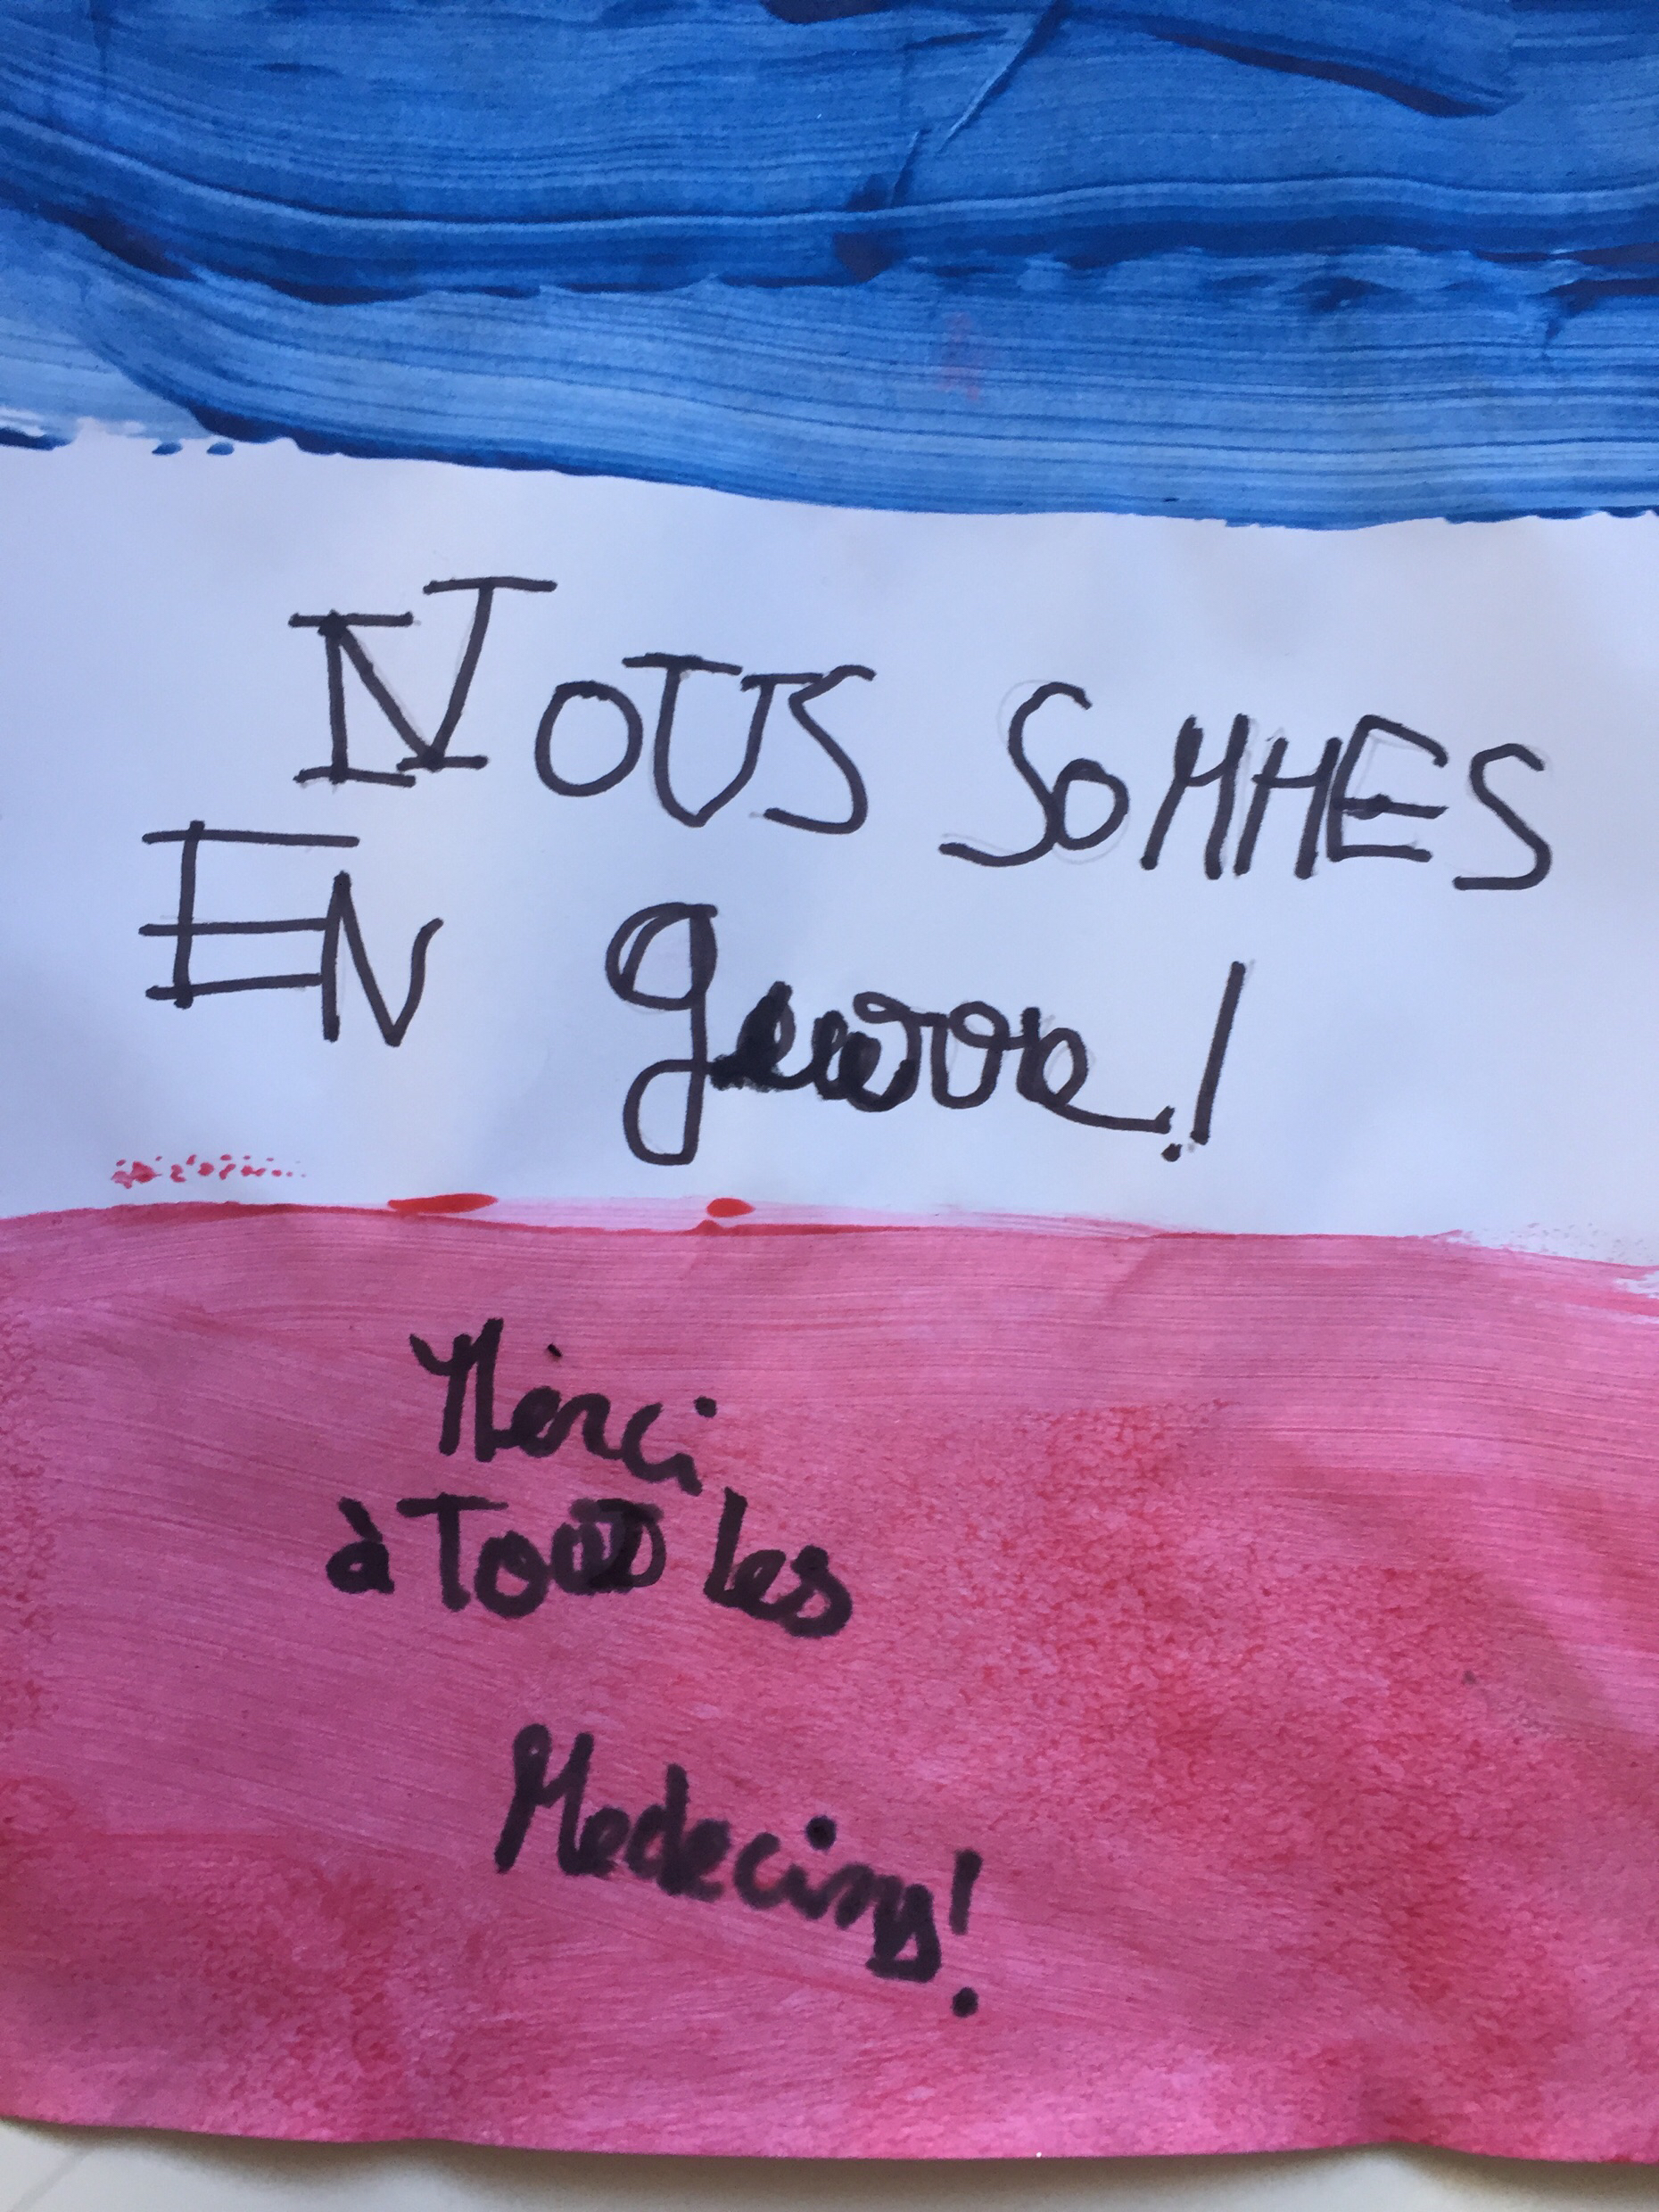 NOUS SOMMES
EN guerre!
Merci
à Tous les
Medecins!